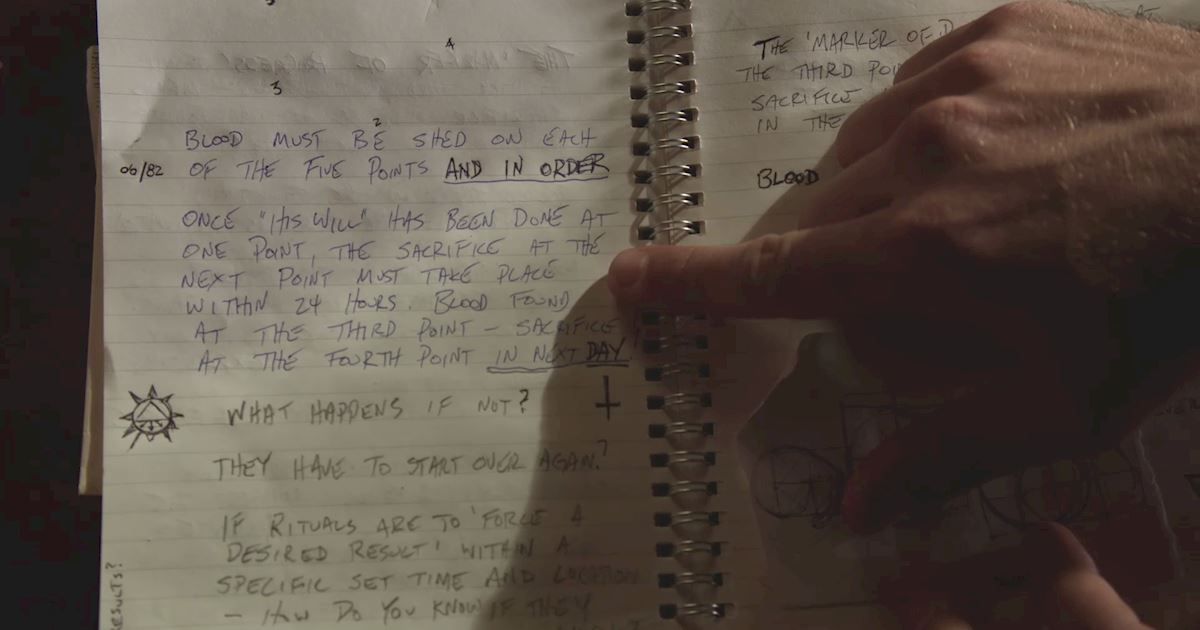 4
3
2
BLOOD MUST BE SHED ON EACH
06/82 OF THE FIVE POINTS AND IN ORDER
ONCE "HIS WILL" HAS BEEN DONE AT
ONE POINT, THE SACRIFICE AT THE
NEXT POINT MUST TAKE PLACE
WITHIN 24 HOURS. BLOOD FOUND
AT THE THIRD POINT – SACRIFICE
AT THE FOURTH POINT IN NEXT DAY!
WHAT HAPPENS IF NOT?
THEY HAVE TO START OVER AGAIN?
IF RITUALS ARE TO 'FORCE A
DESIRED RESULT' WITHIN A
SPECIFIC SET TIME AND LOCATION
– HOW DO YOU KNOW IF THEY
RESULTS?
THE 'MARKER OF
THE THIRD
SACRIFICE
IN THE
BLOOD